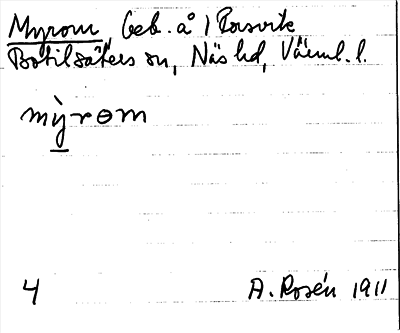 Myrom, beb. å 1 Torsvik
Botilsäters sn, Näs hd, Värml. l.
mỳrom
4 A. Rosén 1911